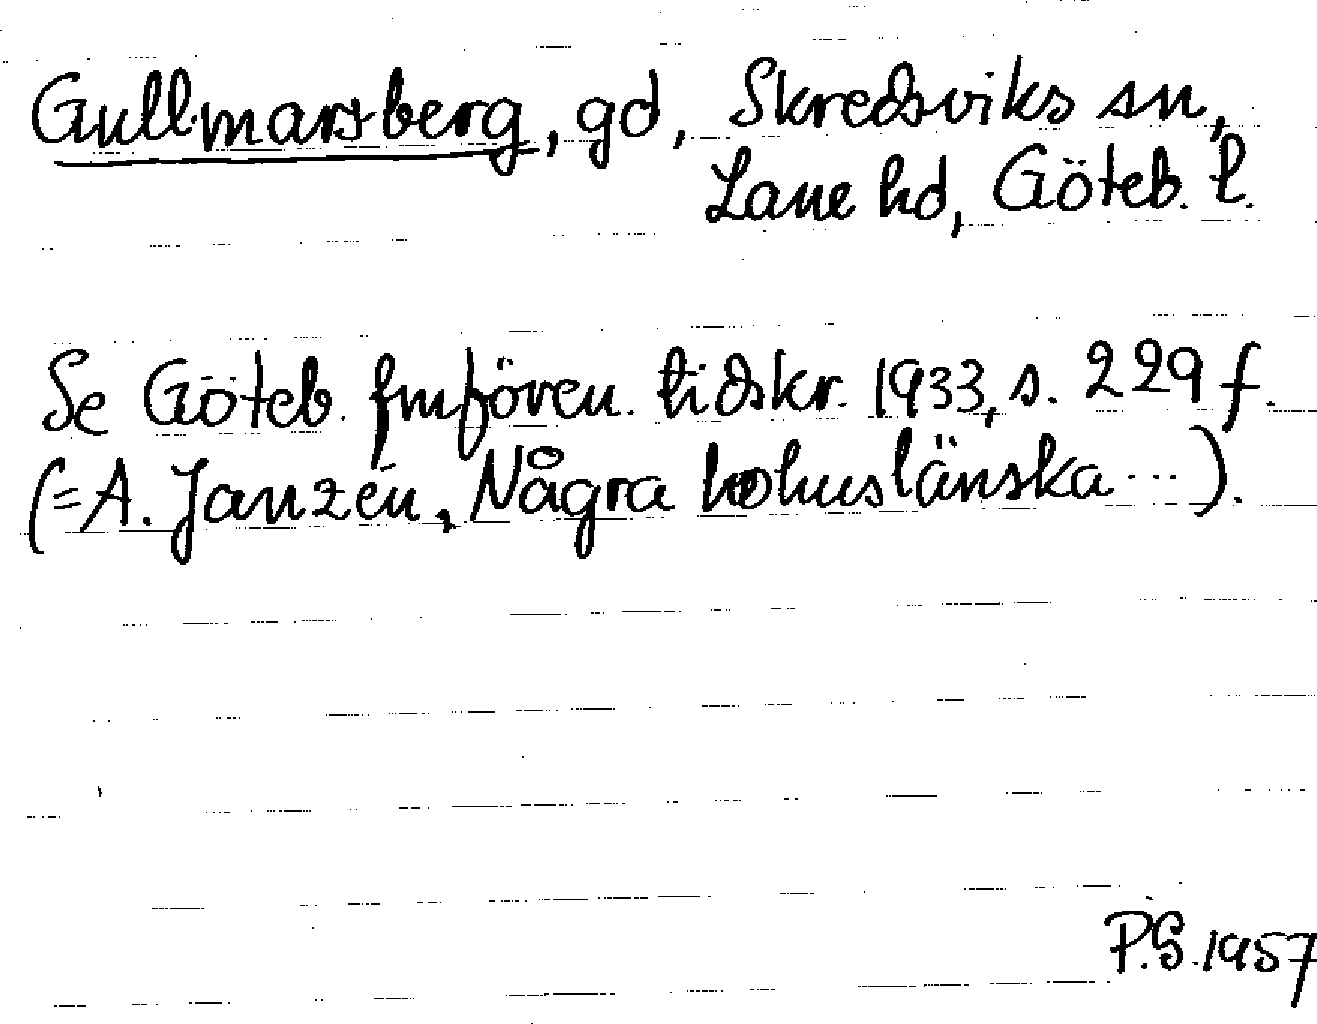 Gullmarsberg, gd, Skredsviks sn,
Lane hd, Göteb. l.
Se Göteb. fmfören. tidskr. 1933, s. 229 f.
(= A. Janzén, Några bohuslänska ...).
P.S. 1957